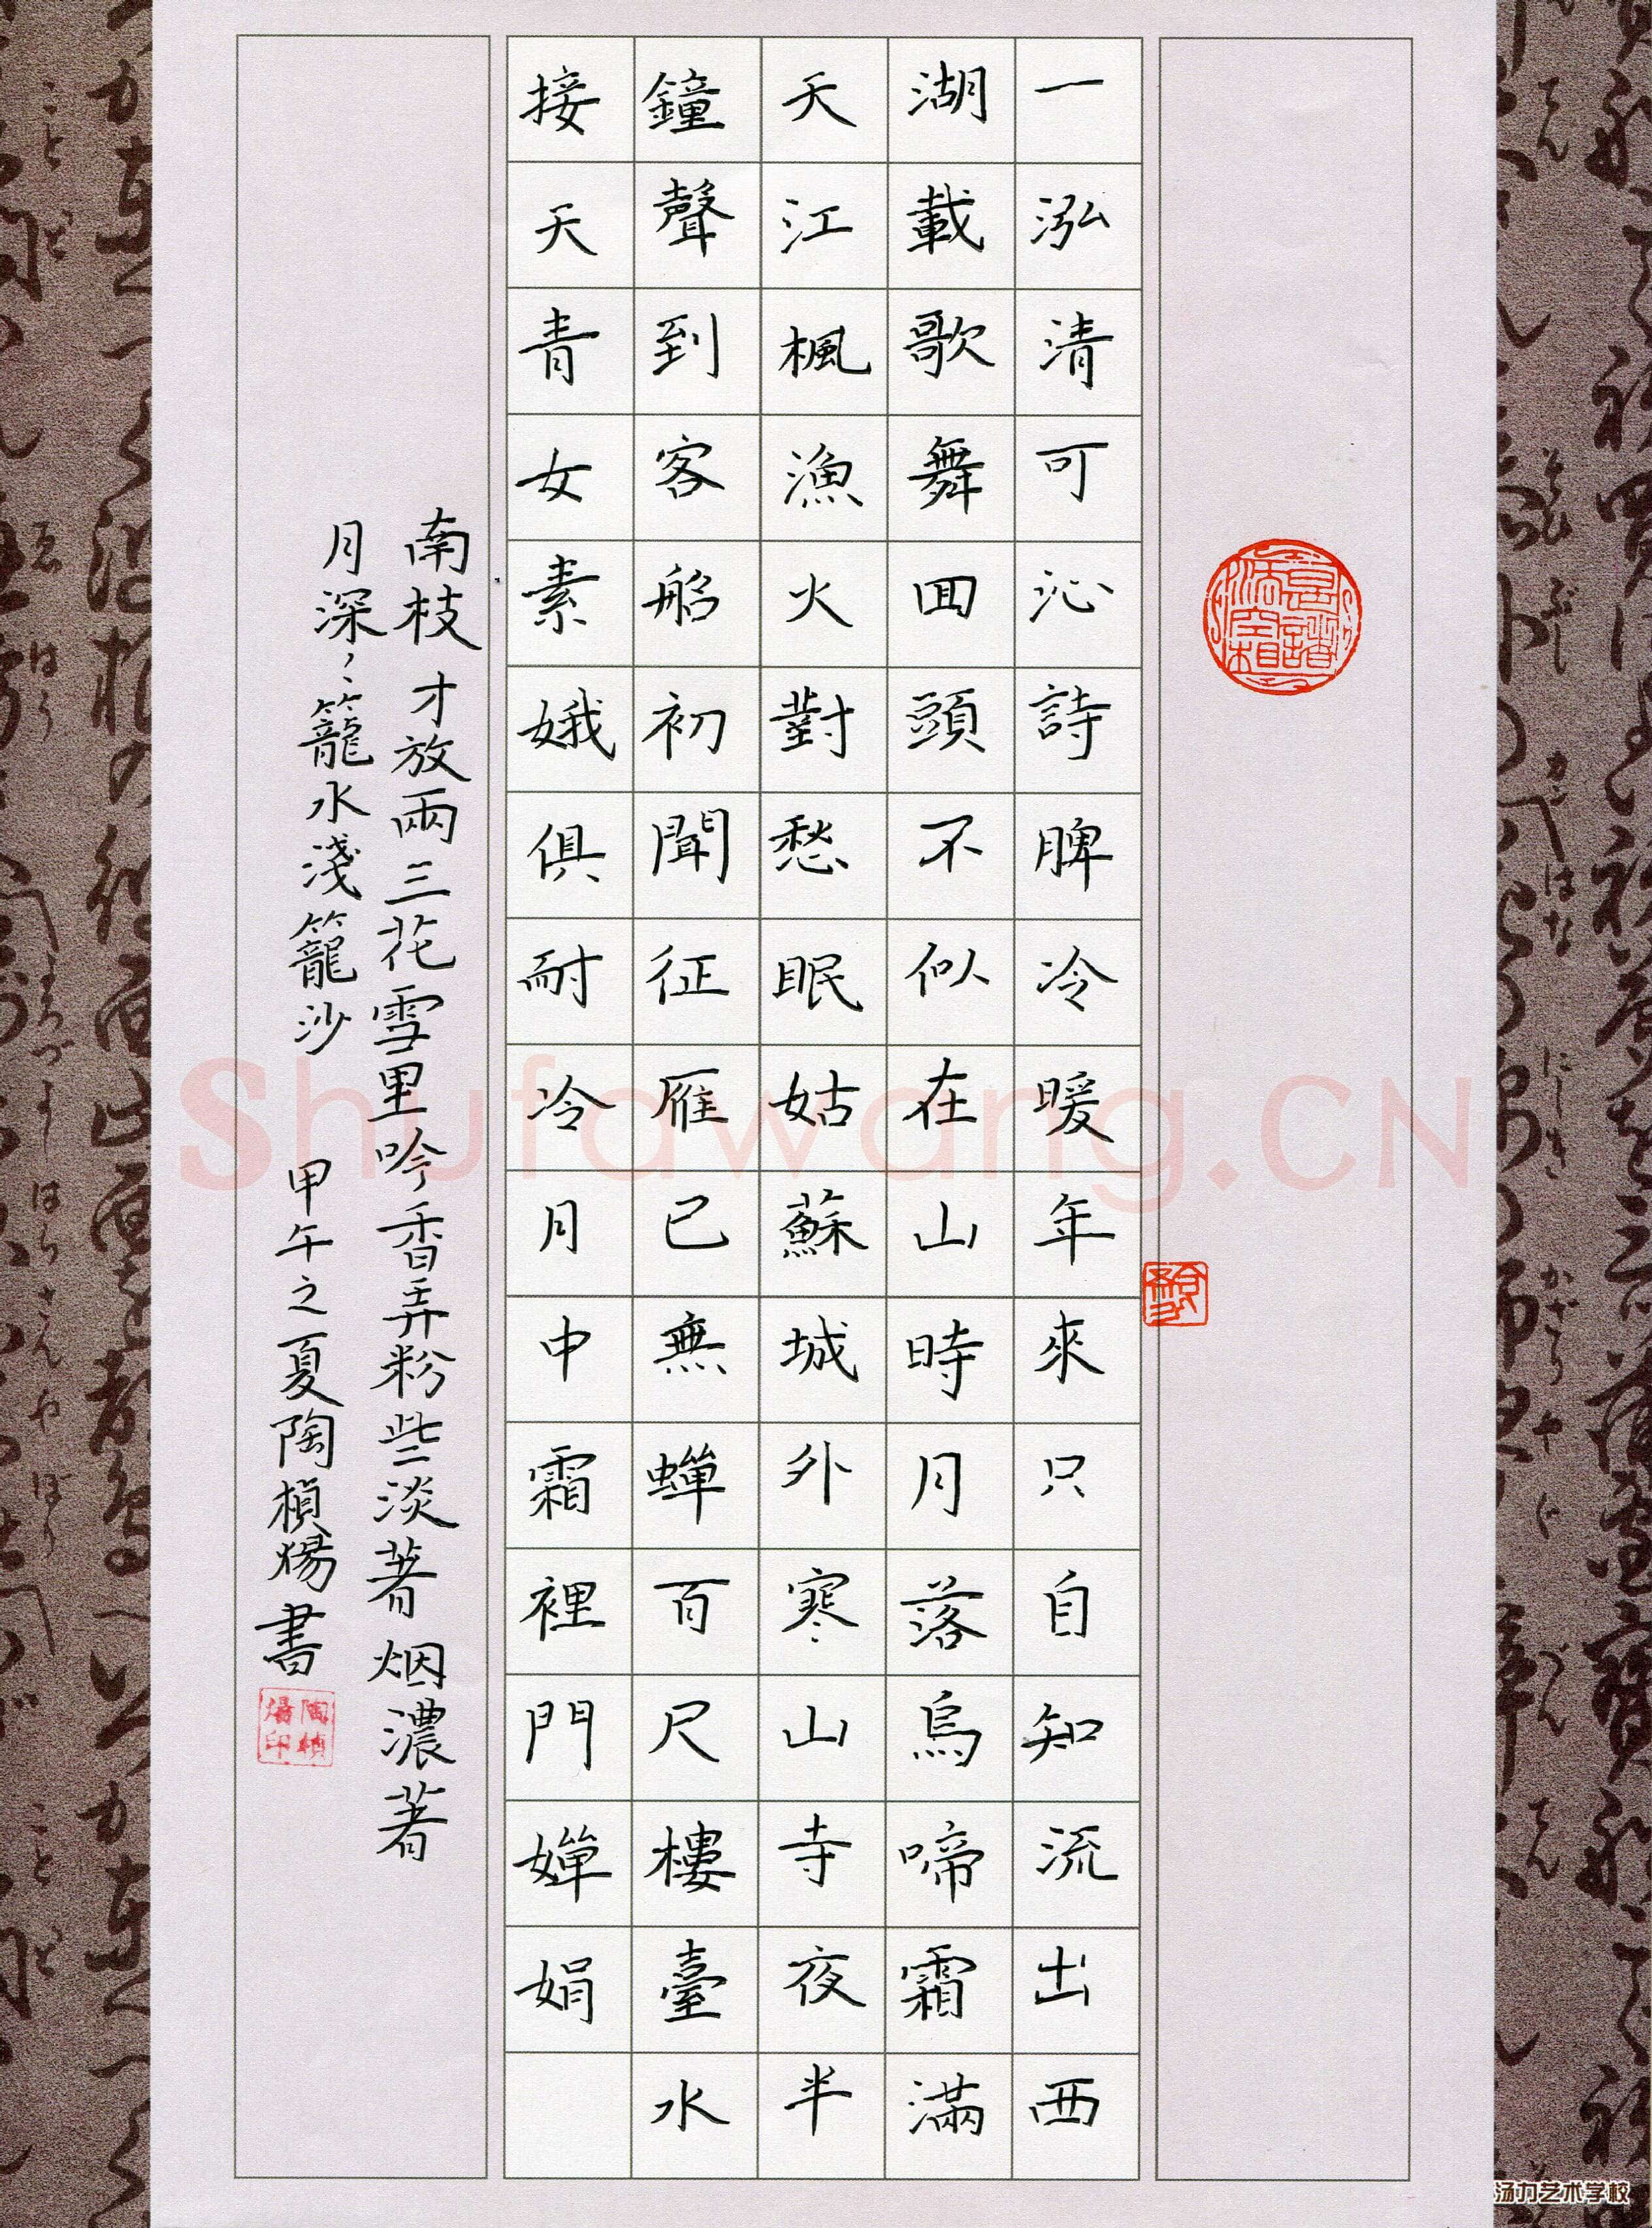 一泓清可沁詩脾冷暖年來只自知流出西
湖載歌舞回頭不似在山時月落烏啼霜滿
天江楓漁火對愁眠姑蘇城外寒山寺夜半
鐘聲到客船初聞征雁已無蟬百尺樓臺水
接天青女素娥俱耐冷月中霜裡門嬋娟
南枝才放兩三花雪里吟香弄粉些淡著烟濃著
月深、籠水淺籠沙 甲午之夏陶楨煬書
陶楨煬印
Shufawang.CN
汤力艺术学校